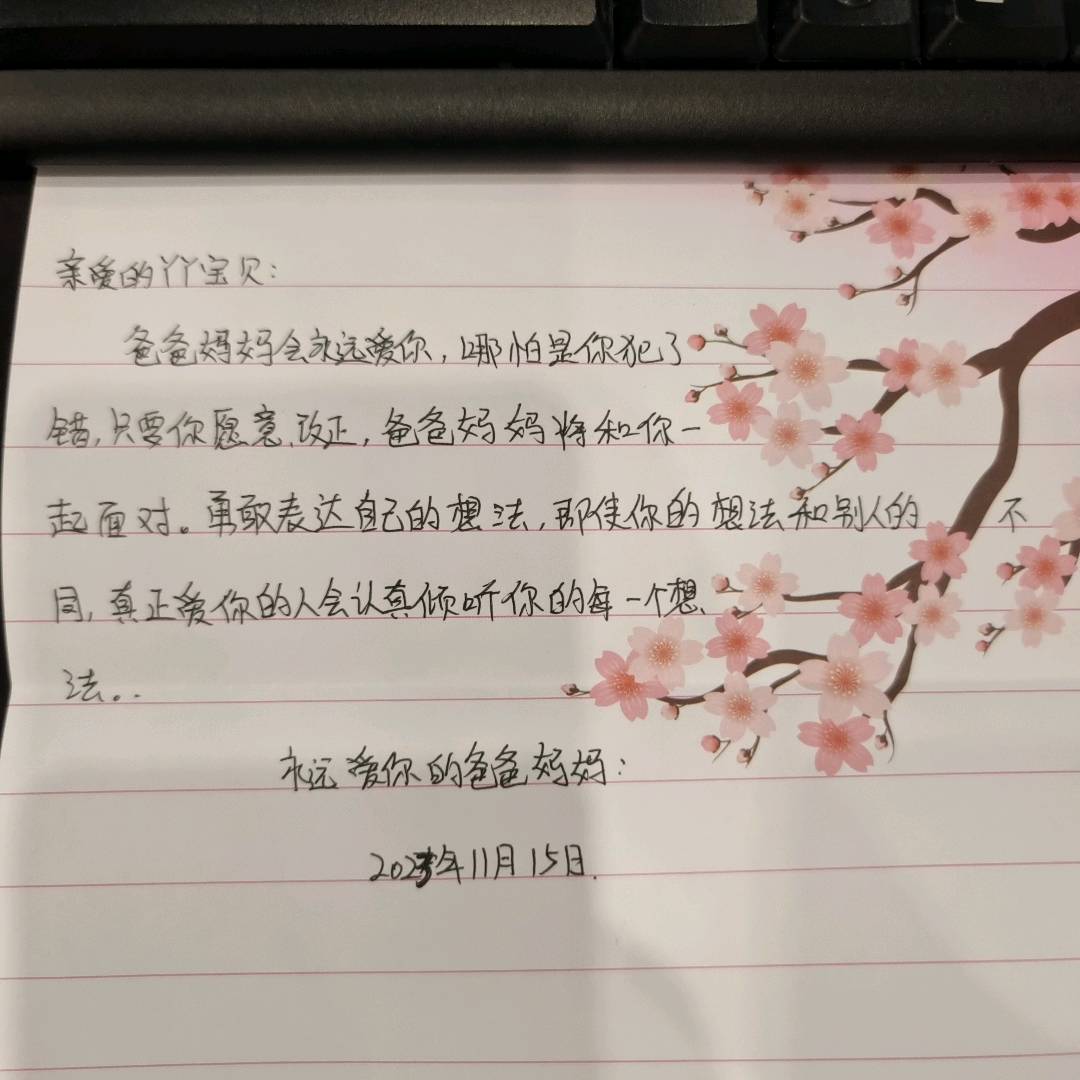 亲爱的丫丫宝贝：
爸爸妈妈会永远爱你，哪怕是你犯了
错，只要你愿意改正，爸爸妈妈将和你一
起面对。勇敢表达自己的想法，即使你的想法和别人的 不
同，真正爱你的人会认真倾听你的每一个想
法。.
永远爱你的爸爸妈妈：
2025年11月15日.